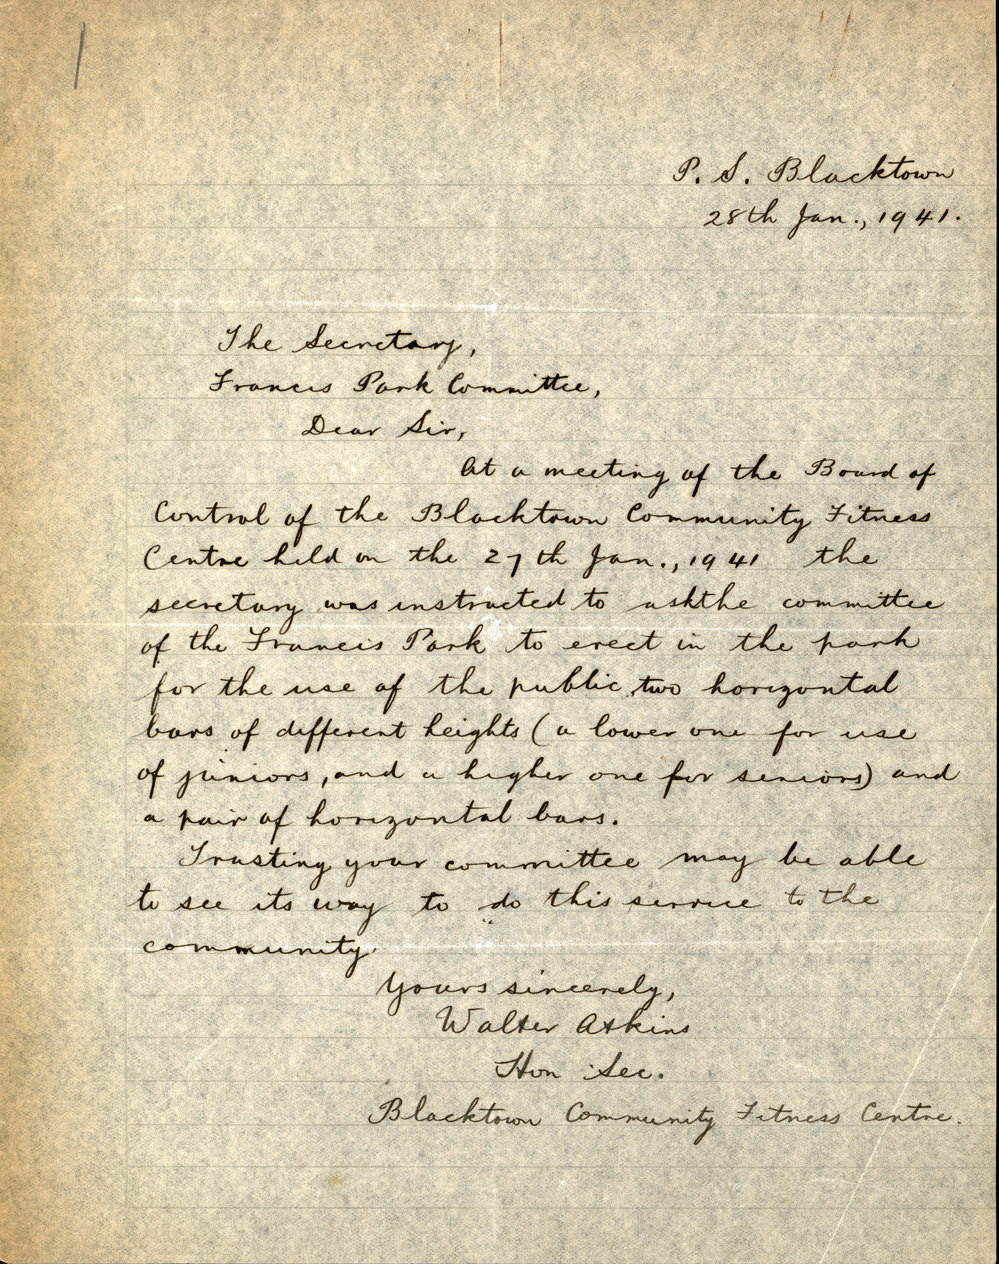 P. S. Blacktown
28th Jan., 1941.
The Secretary,
Francis Park Committee,
Dear Sir,
At a meeting of the Board of
Control of the Blacktown Community Fitness
Centre held on the 27th Jan., 1941 the
secretary was instructed to ask the committee
of the Francis Park to erect in the park
for the use of the public, two horizontal
bars of different heights (a lower one for use
of juniors, and a higher one for seniors) and
a pair of horizontal bars.
Trusting your committee may be able
to see its way to do this service to the
community.
Yours sincerely,
Walter Atkins
Hon Sec.
Blacktown Community Fitness Centre.